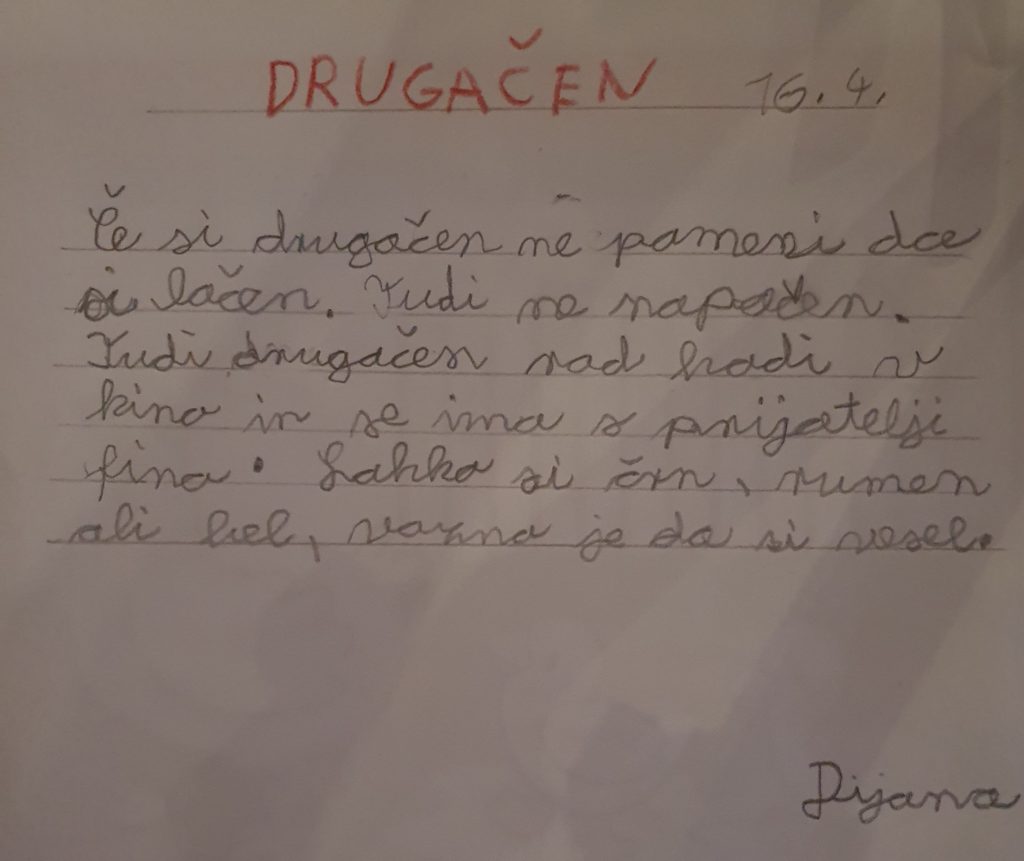 DRUGAČEN 16. 4.
Če si drugačen ne pomeni da
si lačen. Tudi ne napačen.
Tudi drugačen rad hodi v
kino in se ima s prijatelji
fino. Lahko si črn, rumen
ali bel, vazno je da si vesel.
Dijana